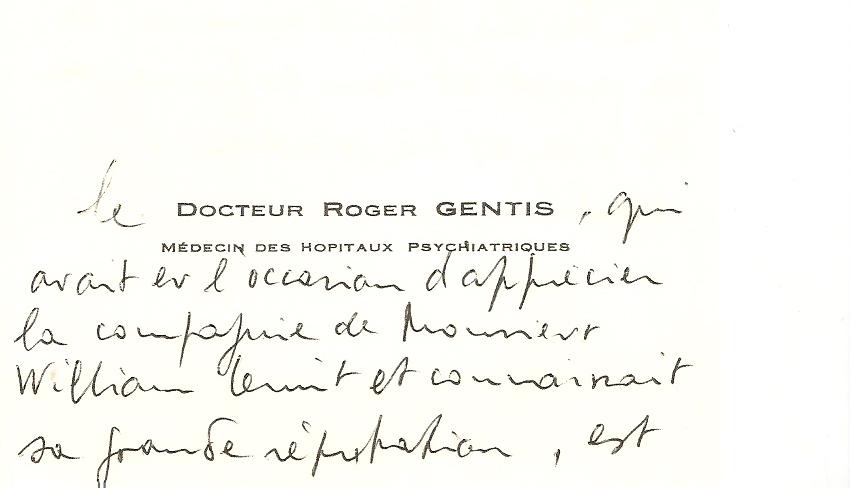 le DOCTEUR ROGER GENTIS, qui
MÉDECIN DES HOPITAUX PSYCHIATRIQUES
avait eu l'occasion d'apprécier
la compagnie de Monsieur
William et connaissait
sa grande réputation, est